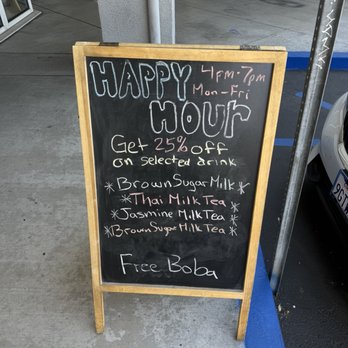 HAPPY 4PM-7PM
Mon-Fri
HOUR
Get 25% off
on selected drink
*Brown Sugar Milk*
*Thai Milk Tea*
*Jasmine Milk Tea*
*Brown Sugar Milk Tea*
Free Boba